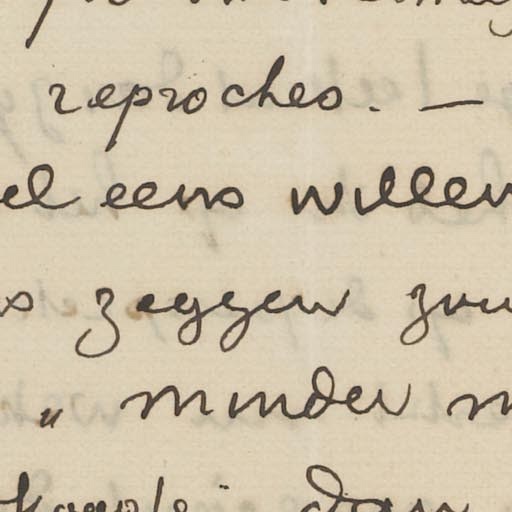 reproches. —
el eens willen
s zeggen zou
„ minder m
dan